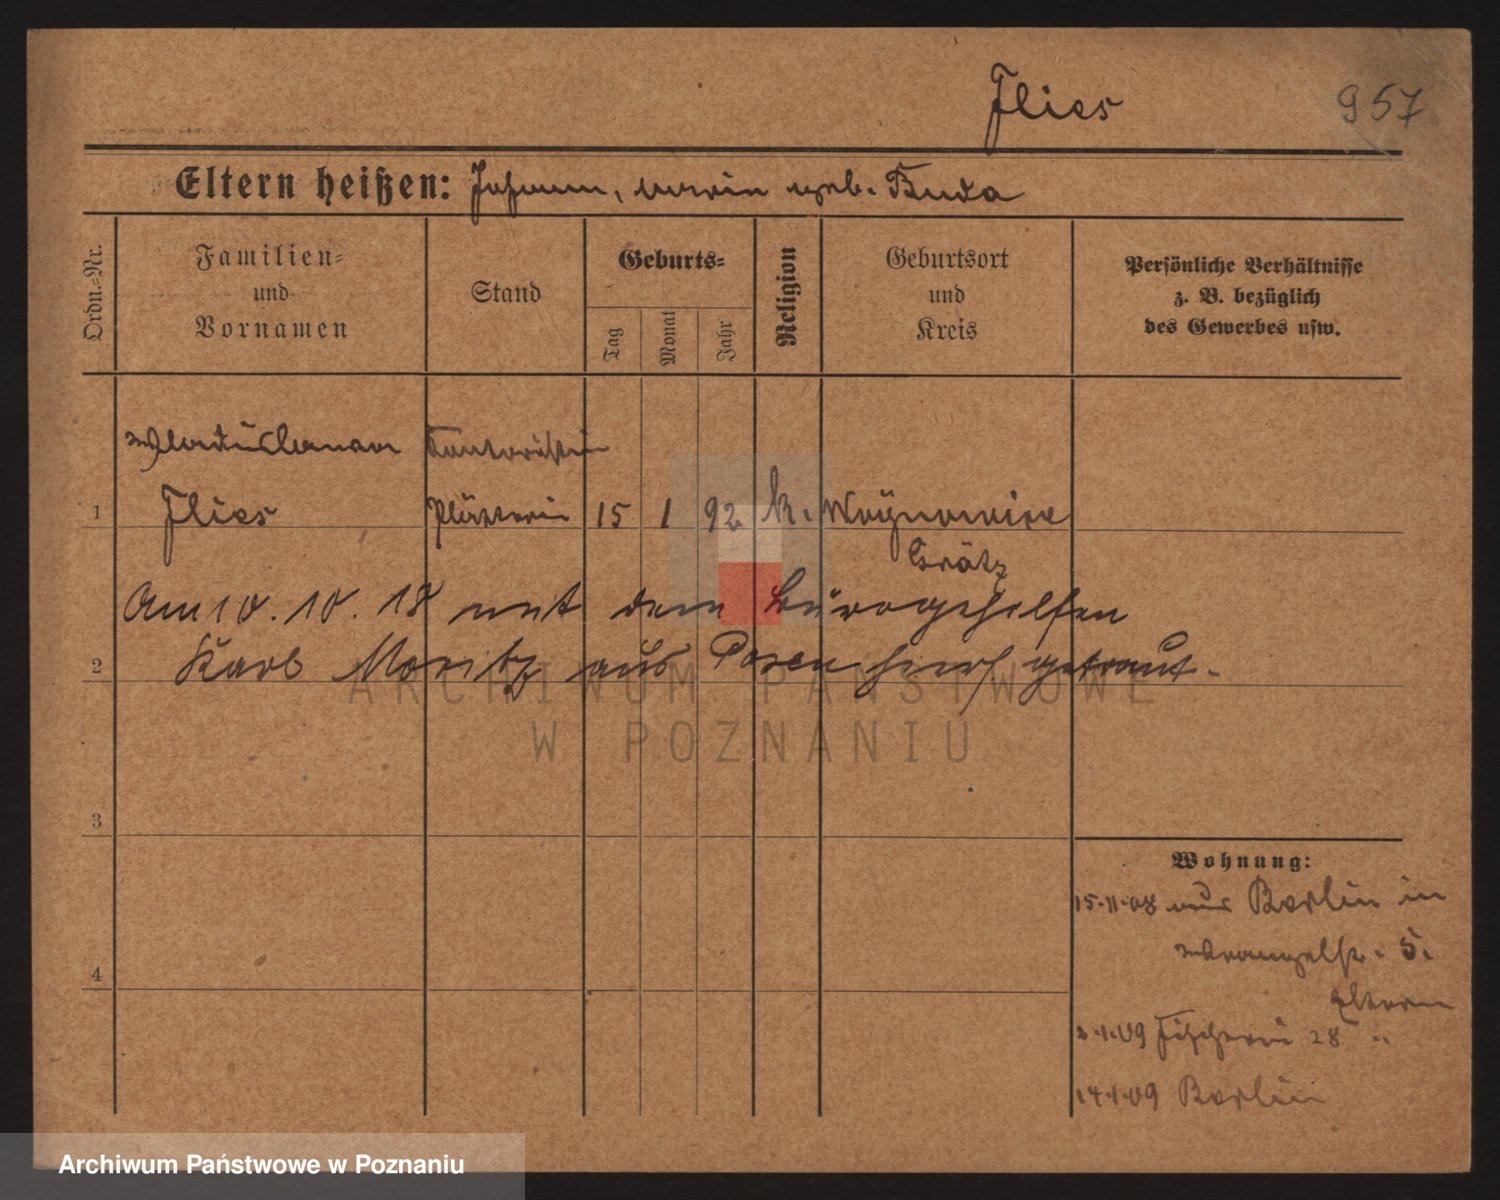 Flies
957
Eltern heißen: Johann, geb. Buda
Ordn.-Nr.
Familien-
und
Vornamen
Stand
Geburts-
Tag
Monat
Jahr
Religion
Geburtsort
und
Kreis
Persönliche Verhältnisse
z. B. bezüglich
des Gewerbes usw.
Wladislawa Kontoristin
1 Flies Plätterin 15 1 92 k.
Grätz
Am 10. 10. 18 mit dem Bürogehilfen
2 Karl Moritz aus Posen hier getraut.
3
4
Wohnung:
15.11.08 aus Berlin in
Wrangelstr. 5.
Eltern
2.1.09 Fischerei 28 "
14.1.09 Berlin
ARCHIWUM PAŃSTWOWE
W POZNANIU
Archiwum Państwowe w Poznaniu